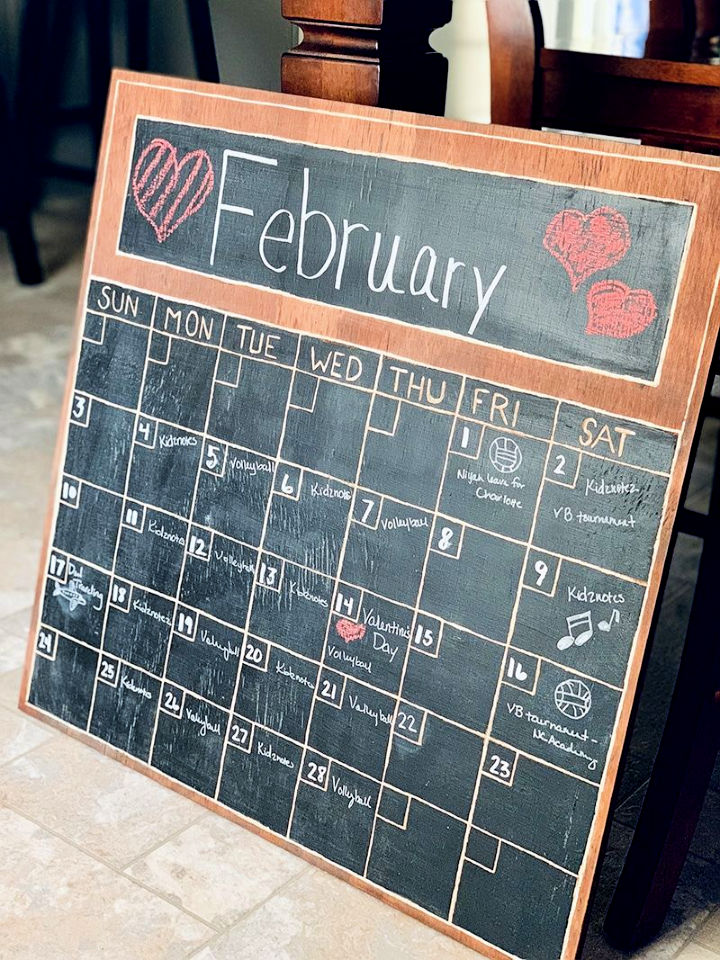 February
SUN MON TUE WED THU FRI SAT
1
Niyah leave for
Charlotte
2
Kidznotez
VB tournament
3
4 Kidznotes
5 Volleyball
6 Kidznots
7 Volleyball
8
9
Kidznotes
10
11 Kidznotes
12 Volleyball
13 Kidznotes
14 Valentine's
Day
Volleyball
15
16
VB tournament -
NC Academy
17 Dad
Traveling
18 Kidznotez
19 Volleyball
20 Kidznotes
21 Volleyball
22
23
24
25 Kidznotes
26 Volleyball
27 Kidznotes
28 Volleyball